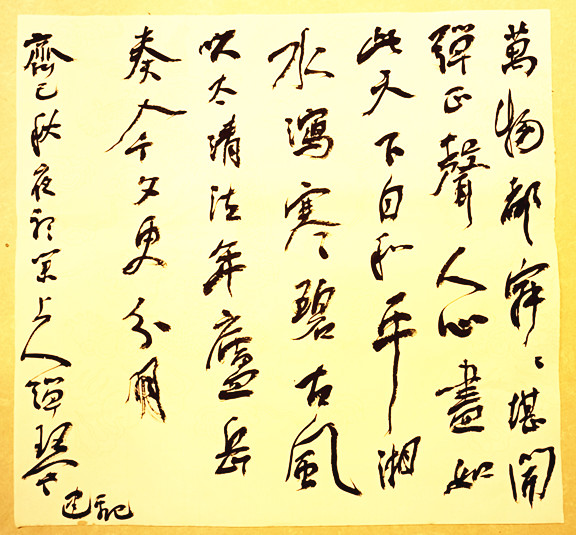 萬物都寂〻堪聞
彈正聲人心盡如
此天下自和平湘
水瀉寒碧古風
吹太清往年廬岳
奏今夕更分明
齊己秋夜聽業上人彈琴